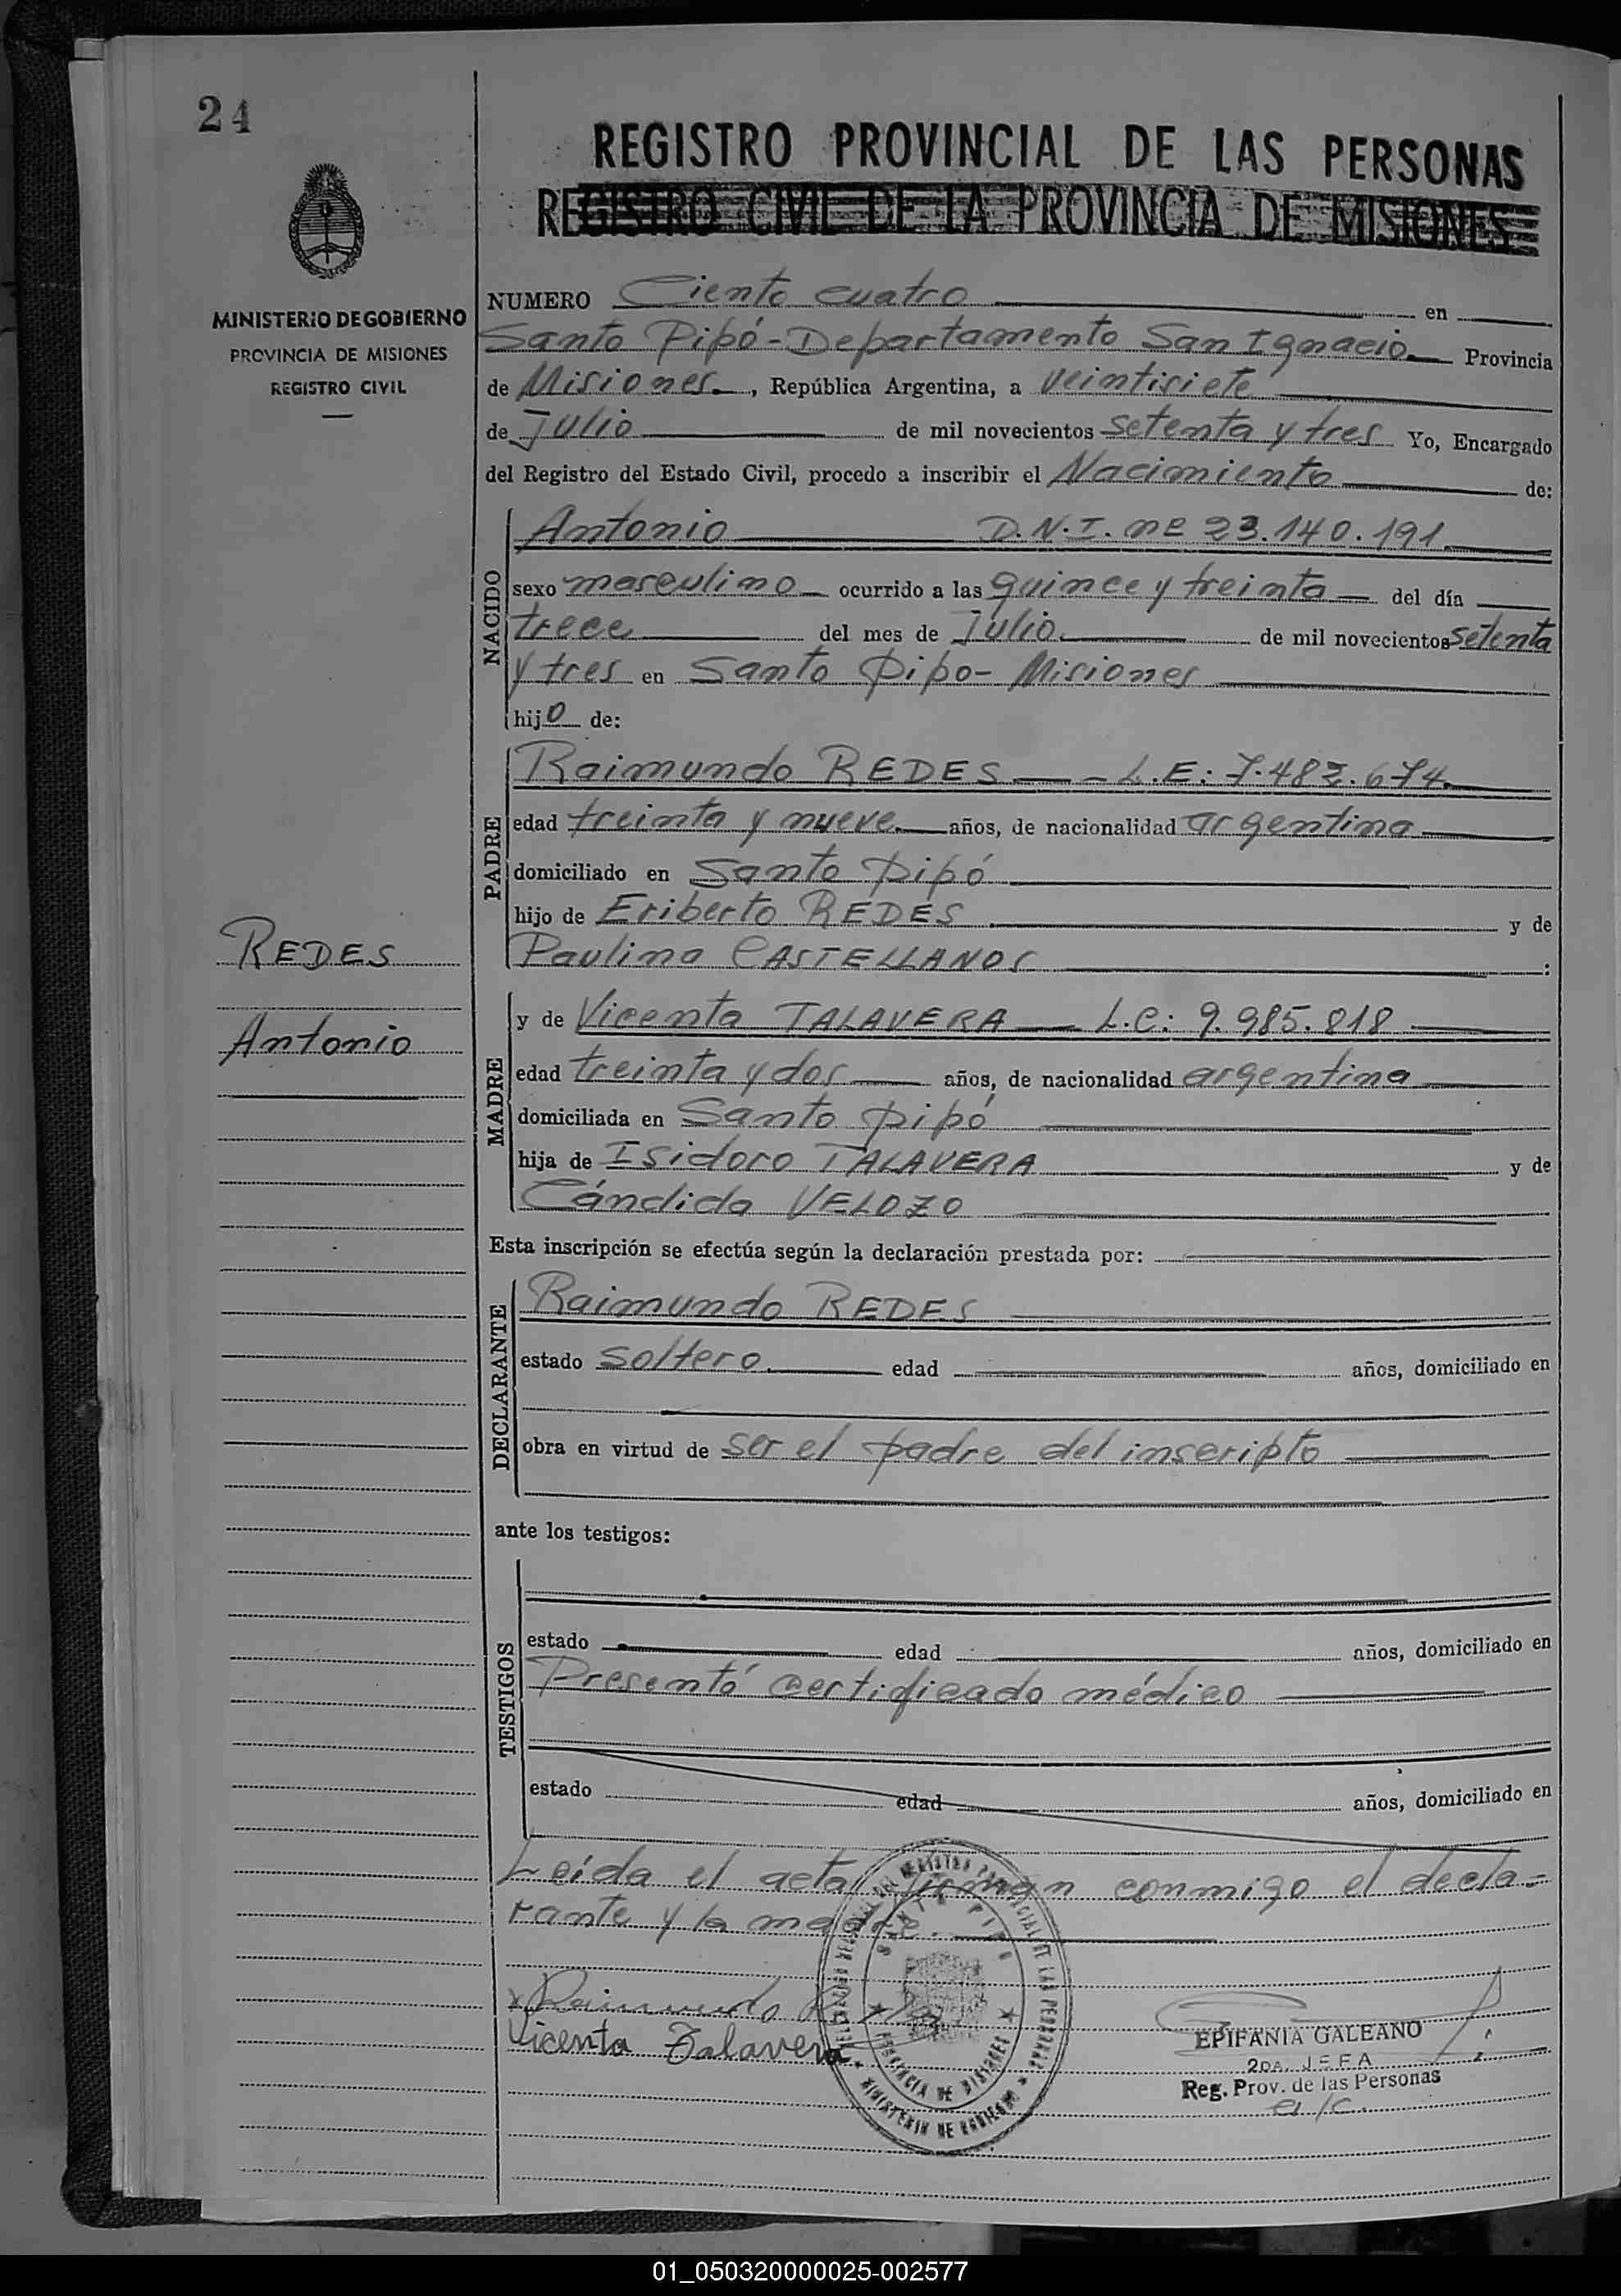 24
REGISTRO PROVINCIAL DE LAS PERSONAS
REGISTRO CIVIL DE LA PROVINCIA DE MISIONES
MINISTERIO DE GOBIERNO
PROVINCIA DE MISIONES
REGISTRO CIVIL
NUMERO Ciento cuatro en
Santo Pipó - Departamento San Ignacio Provincia
de Misiones, República Argentina, a veintisiete
de Julio de mil novecientos setenta y tres Yo, Encargado
del Registro del Estado Civil, procedo a inscribir el Nacimiento de:
NACIDO
Antonio D.N.I. nº 23.140.191
sexo masculino ocurrido a las quince y treinta del día
trece del mes de Julio de mil novecientos setenta
y tres en Santo Pipo - Misiones
hijo de:
PADRE
Raimundo REDES - L.E: 7.483.674
edad treinta y nueve años, de nacionalidad argentina
domiciliado en Santo Pipó
hijo de Eriberto REDES y de
Paulina CASTELLANOS :
REDES
Antonio
MADRE
y de Vicenta TALAVERA L.C: 9.985.818
edad treinta y dos años, de nacionalidad argentina
domiciliada en Santo Pipó
hija de Isidoro TALAVERA y de
Cándida VELOZO
Esta inscripción se efectúa según la declaración prestada por:
DECLARANTE
Raimundo REDES
estado soltero. edad años, domiciliado en
obra en virtud de ser el padre del inscripto
ante los testigos:
TESTIGOS
estado edad años, domiciliado en
Presentó certificado médico
estado edad años, domiciliado en
Leída el acta firman conmigo el decla-
rante y la madre.
x Raimundo
Vicenta Talavera
SANTO PIPO
PROVINCIA DE MISIONES
MINISTERIO DE GOBIERNO
EPIFANIA GALEANO
2DA. JEFA
Reg. Prov. de las Personas
a/c.
01_050320000025-002577